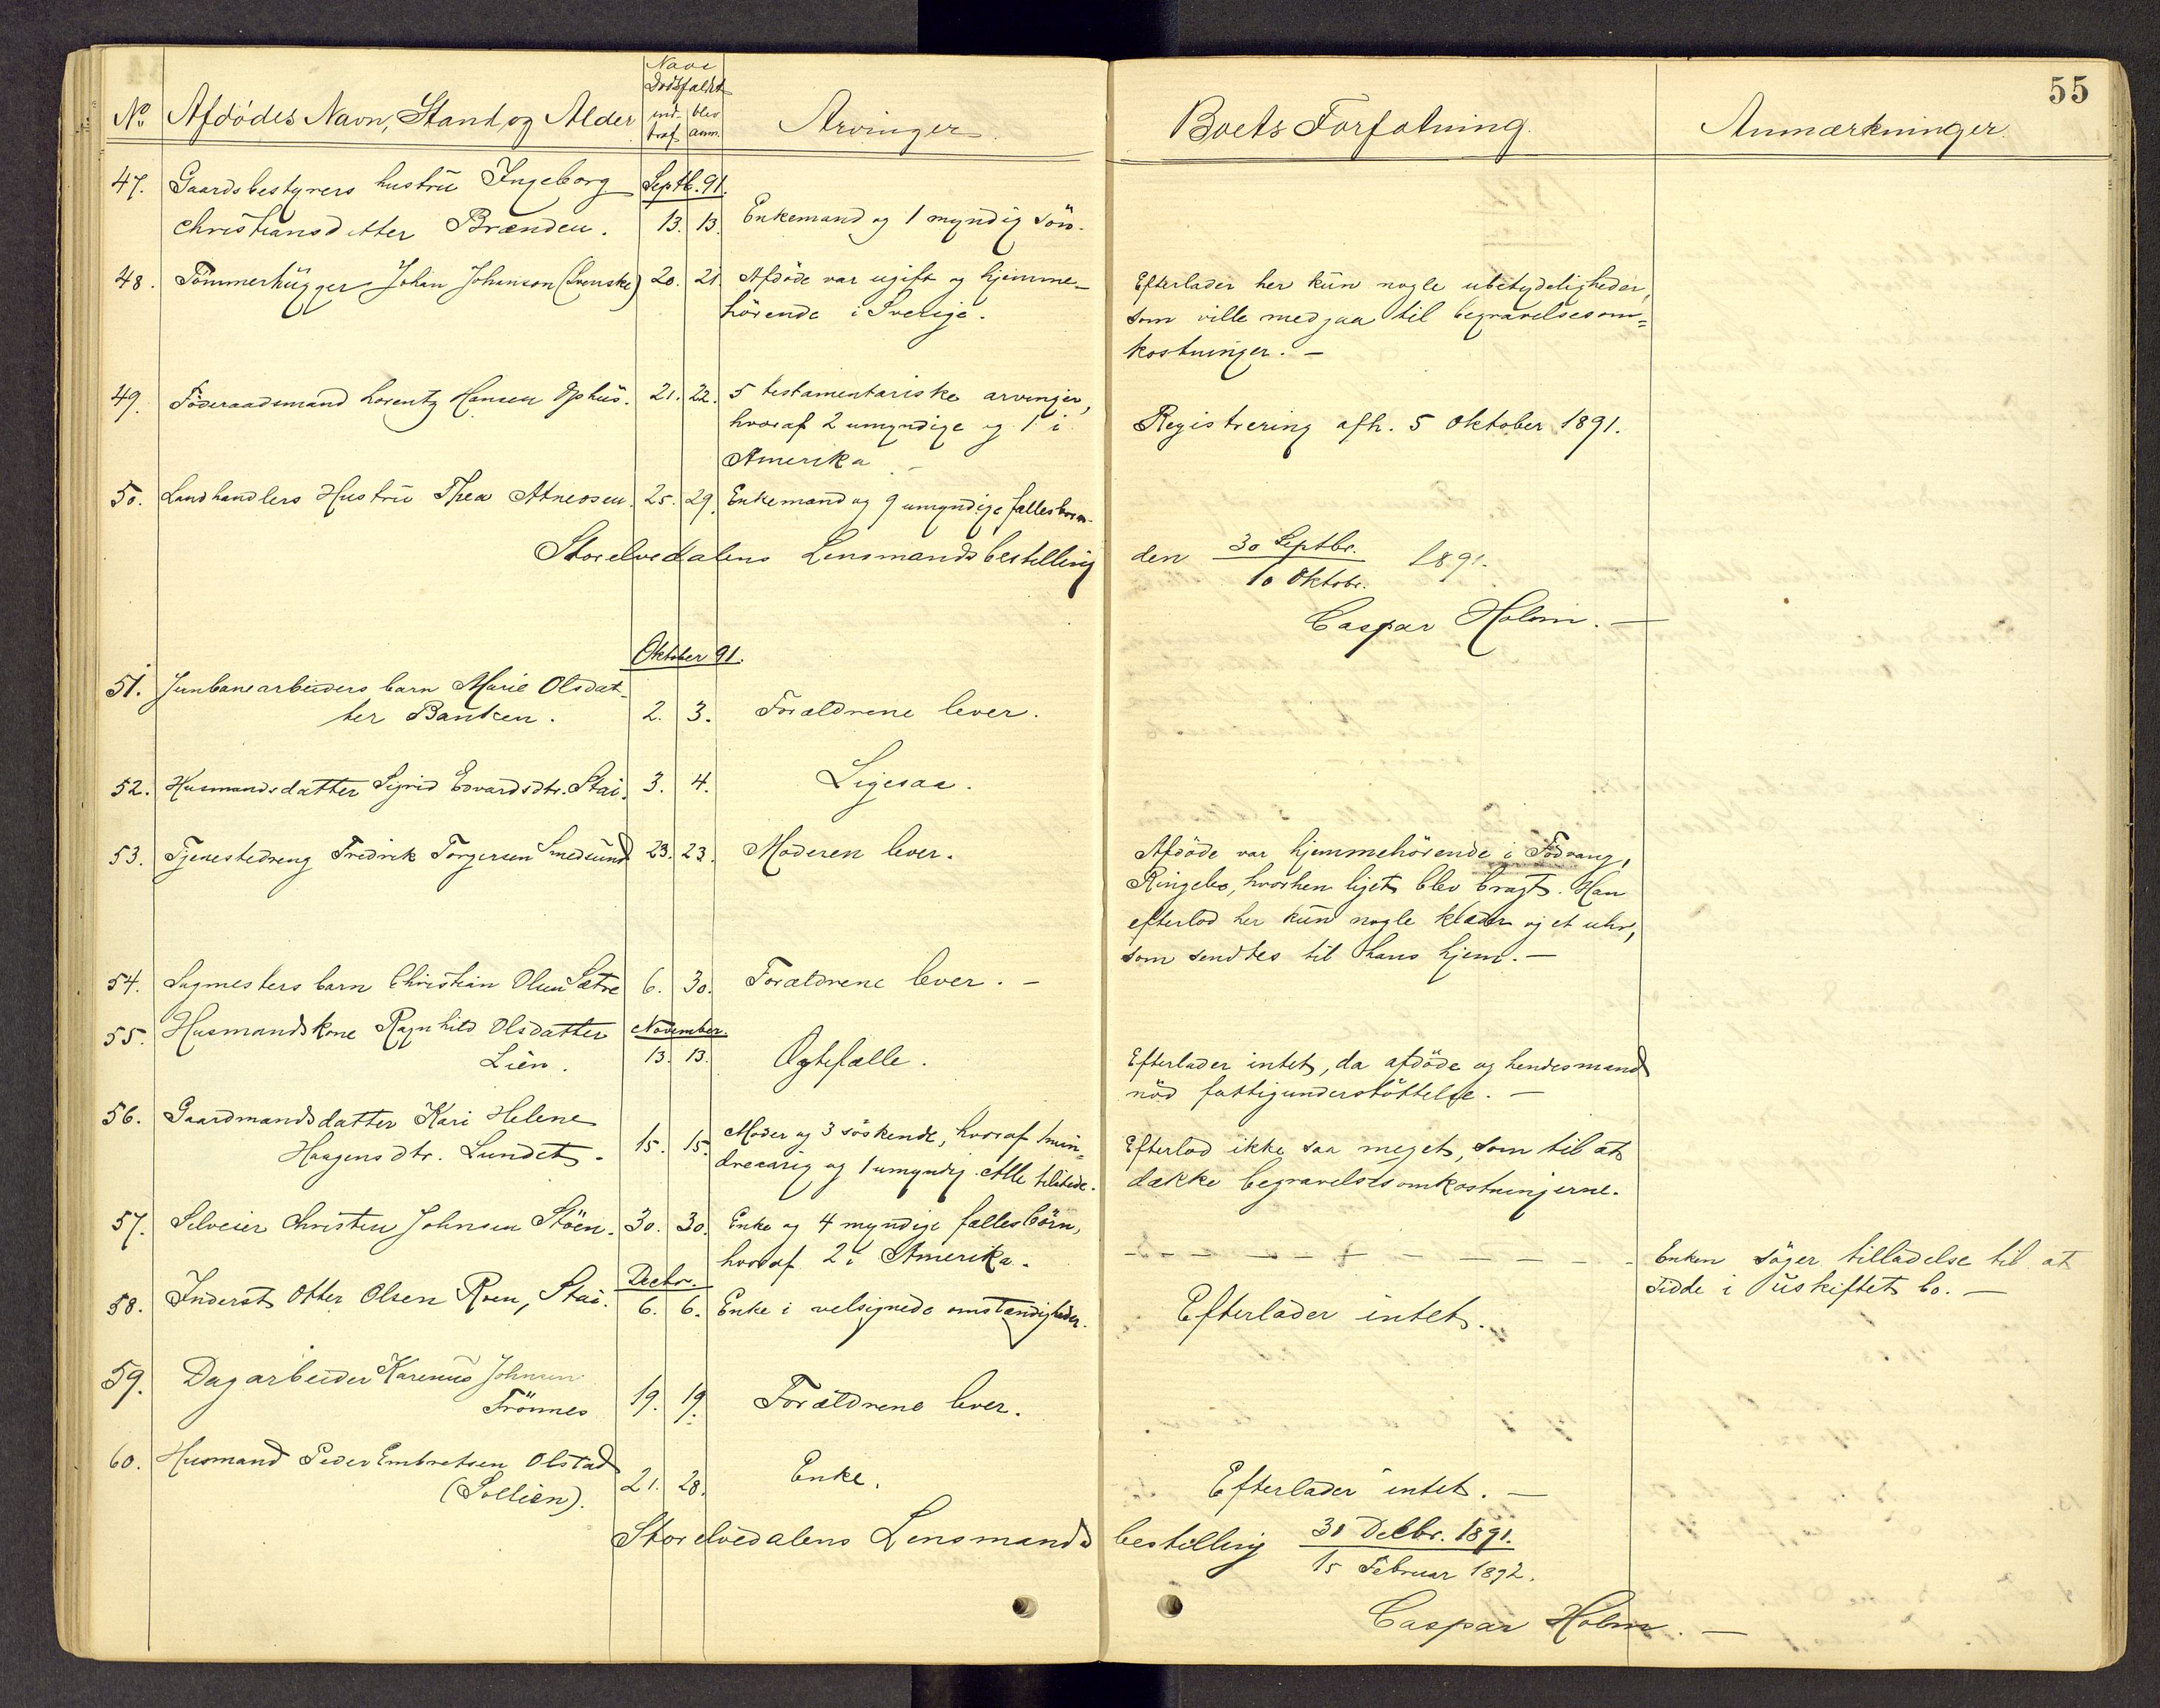 55
No. Afdödes Navn, Stand og Alder
Naar
Dødsfaldet
ind- blev
traf anm.
Arvinger.
Boets Forfatning.
Anmærkninger.
47. Gaardsbestyrers hustru Ingeborg Septb. 91.
Christiansdatter Brænden. 13. 13. Enkemand og 1 myndig sön.
48. Tömmerhugger Johan Johanson (Svenske) 20. 21. Afdöde var ugift og hjemme- Efterlader her kun nogle ubetydeligheder,
hörende i Sverige. som ville medgaa til begravelsesom=
kostninger. —
49. Föderaadsmand Lorentz Hansen Ophus. 21. 22. 5 testamentariske arvinger,
hvoraf 2 umyndige og 1 i Registrering afh. 5 Oktober 1891.
Amerika. —
50. Landhandlers Hustru Thea Atneosen. 25. 29. Enkemand og 9 umyndige fællesbörn.
Storelvedalens Lensmandsbestilling den 30 Septbr. 1891.
10 Oktobr.
Caspar Holm. —
Oktober 91.
51. Jernbanearbeiders barn Marie Olsdat-
ter Banken. 2. 3. Forældrene lever.
52. Husmandsdatter Sigrid Edvardsdtr. Stai. 3. 4. Ligesaa.
53. Tjenestedreng Fredrik Torgersen Smedsund 23. 23. Moderen lever. Afdöde var hjemmehörende i Födvang,
Ringebo, hvorhen liget blev bragt. Han
efterlod her kun nogle klæder og et uhr,
som sendtes til hans hjem. —
54. Sagmesters barn Christian Olsen Sætre 6. 30. Forældrene lever. —
55. Husmandskone Ragnhild Olsdatter November.
Lien. 13. 13. Ægtefælle. Efterlader intet, da afdöde og hendes mand
nöd fattigunderstöttelse. —
56. Gaardmandsdatter Kari Helene
Haagensdtr. Lundet. 15. 15. Moder og 3 söskende, hvoraf 1 min- Efterlod ikke saa meget, som til at
dreaarig og 1 umyndig. Alle tilstede. dække begravelsesomkostningerne.
57. Selveier Christen Johnsen Stöen. 30. 30. Enke og 4 myndige fællesbörn,
hvoraf 2 i Amerika. Enken söger tilladelse til at
sidde i uskiftet bo. —
Decbr.
58. Inderst Otter Olsen Roen, Stai. 6. 6. Enke i velsignede omstændigheder. Efterlader intet.
59. Dagarbeider Karenus Johnsen
Trönnes 19. 19. Forældrene lever.
60. Husmand Peder Embretsen Olstad
(Sollien). 21. 28. Enke. Efterlader intet. —
Storelvedalens Lensmandsbestilling 31 Decbr. 1891.
15 Februar 1892.
Caspar Holm. —